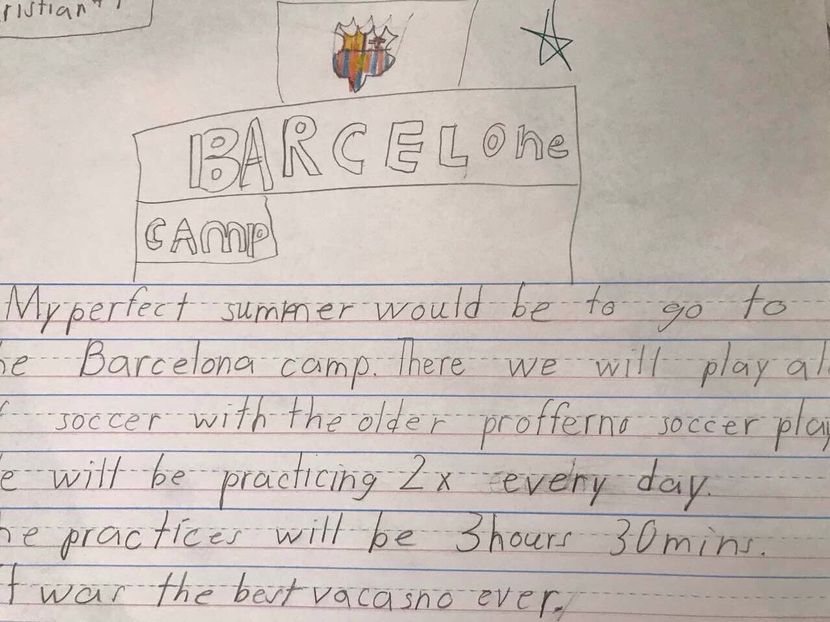 ristian
BARCELOne
CAmp
My perfect summer would be to go to
he Barcelona camp. There we will play al
f soccer with the older profferno soccer play
e will be practicing 2x every day.
he practices will be 3hours 30mins.
t was the best vacasno ever.